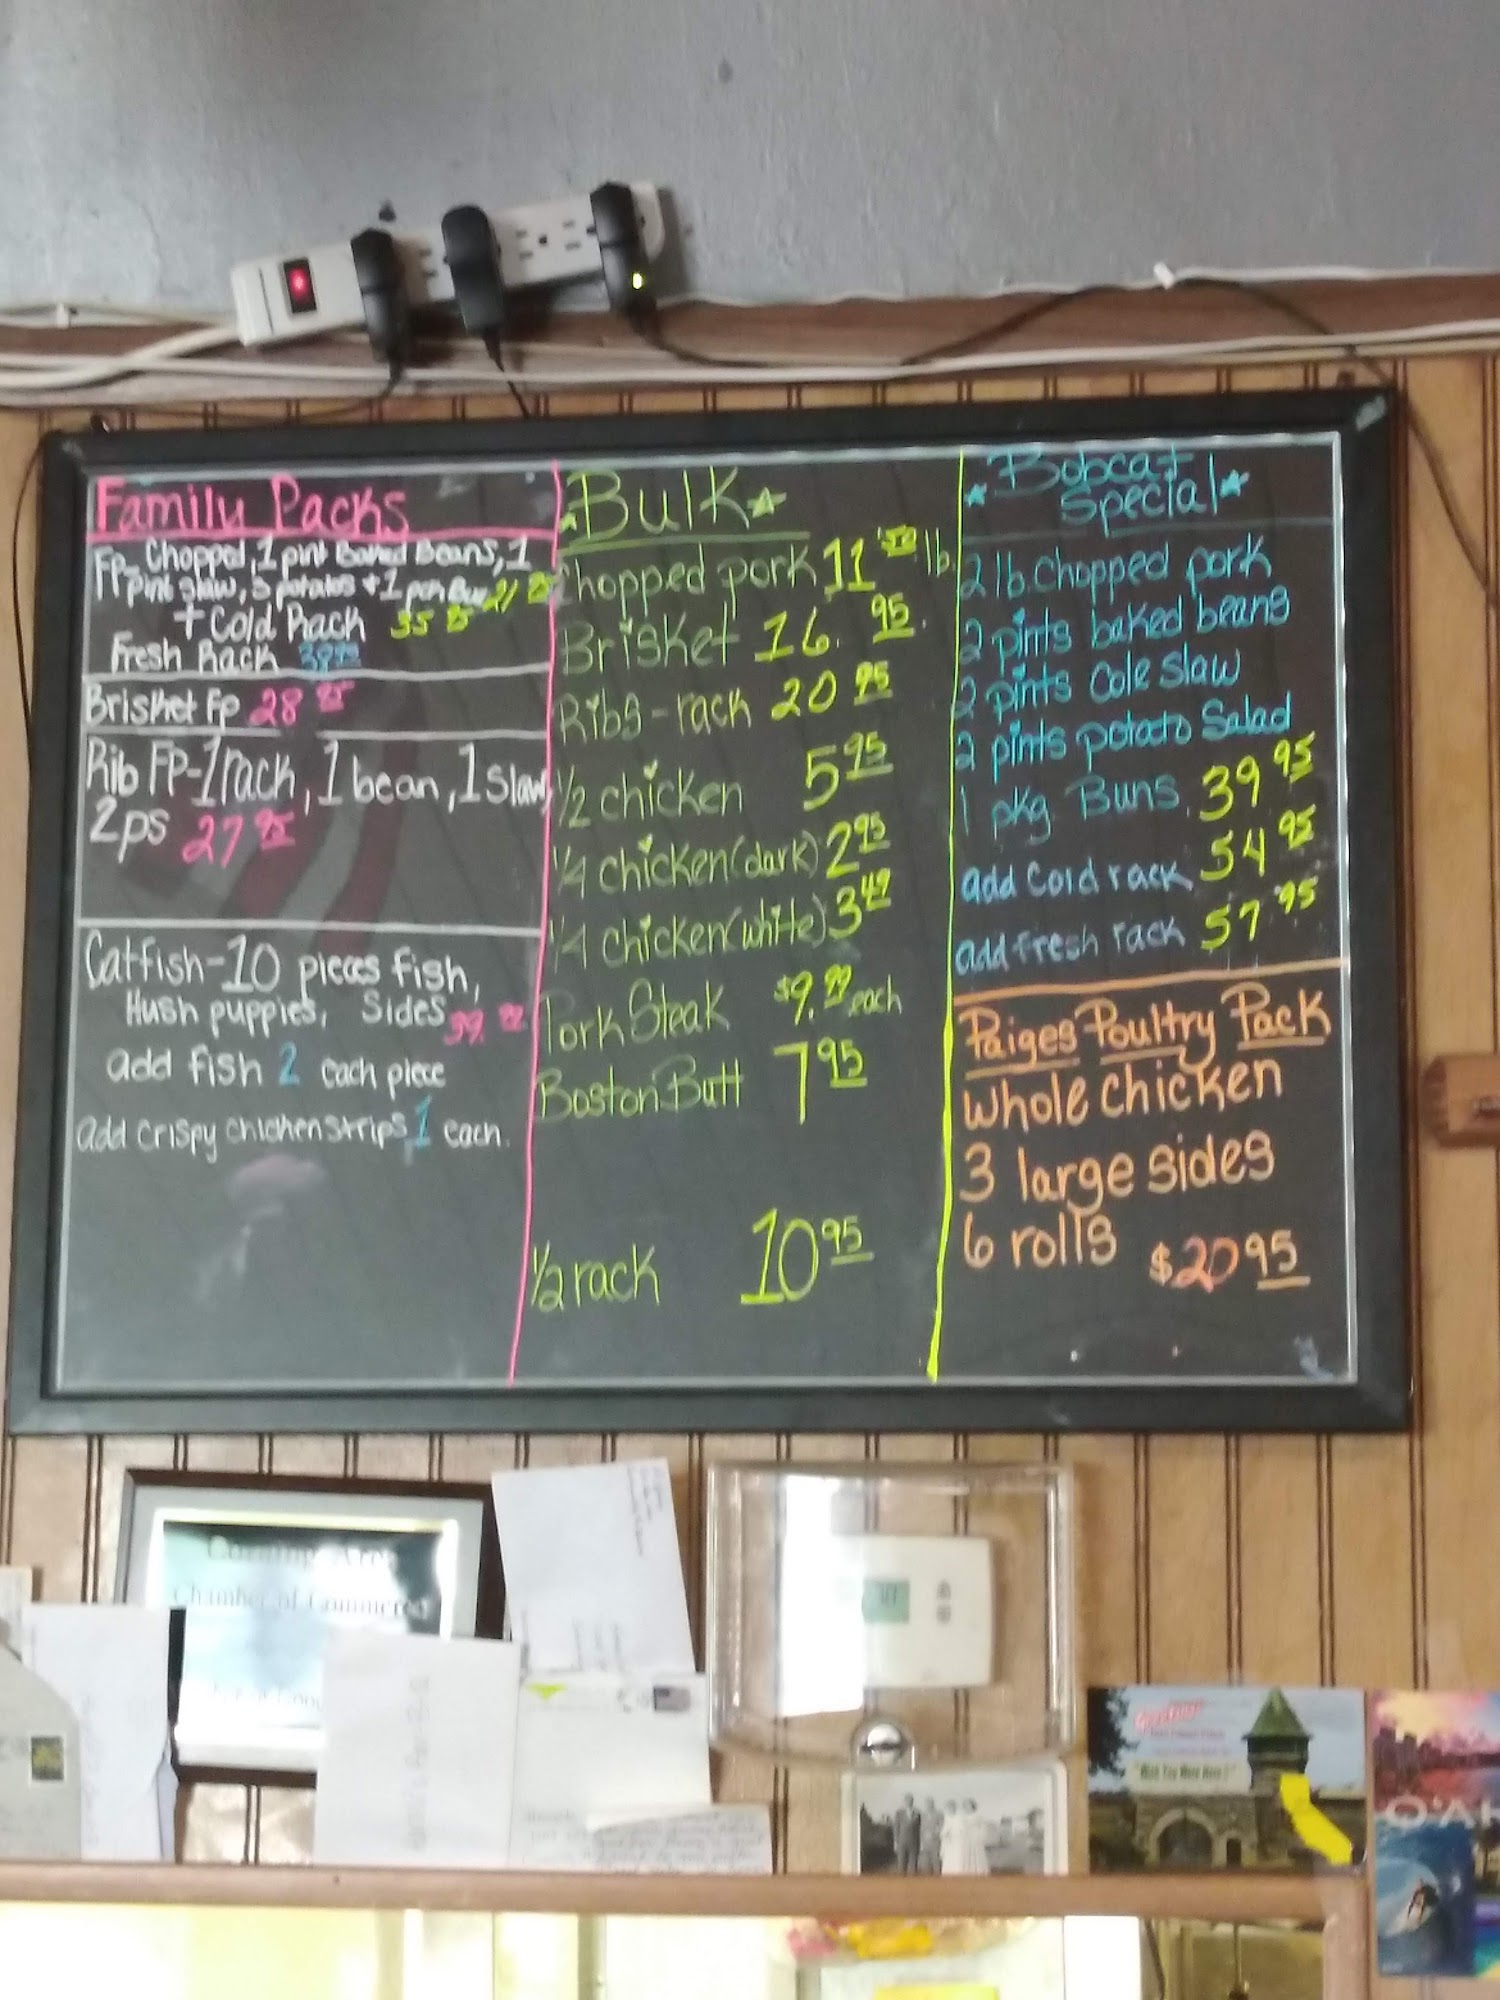 Family Packs
FP- Chopped, 1 pint Baked Beans, 1
pint slaw, 3 potatos + 1 pan Bun 21 95
+ Cold Rack 35 95
Fresh Rack 38 95
Brisket Fp 28 95
Rib FP-1 rack, 1 bean, 1 slaw,
2ps 27 95
Catfish-10 pieces fish,
Hush puppies, Sides 39.
add fish 2 each piece
add crispy chicken strips 1 each.
Bulk
Chopped pork 11 lb.
Brisket 16. 95.
Ribs-rack 20 95
1/2 chicken 5 95
1/4 chicken (dark) 2 95
1/4 chicken (white) 3 49
Pork Steak $9. 99 each
Boston Butt 7 95
1/2 rack 10 95
Bobcat
Special
2 lb. Chopped pork
2 pints baked beans
2 pints Cole slaw
2 pints potato Salad
1 pkg Buns 39 95
add Cold rack 54 95
add fresh rack 57 95
Paiges Poultry Pack
Whole chicken
3 large sides
6 rolls $20 95
Corning Area
Chamber of Commerce
O'AH